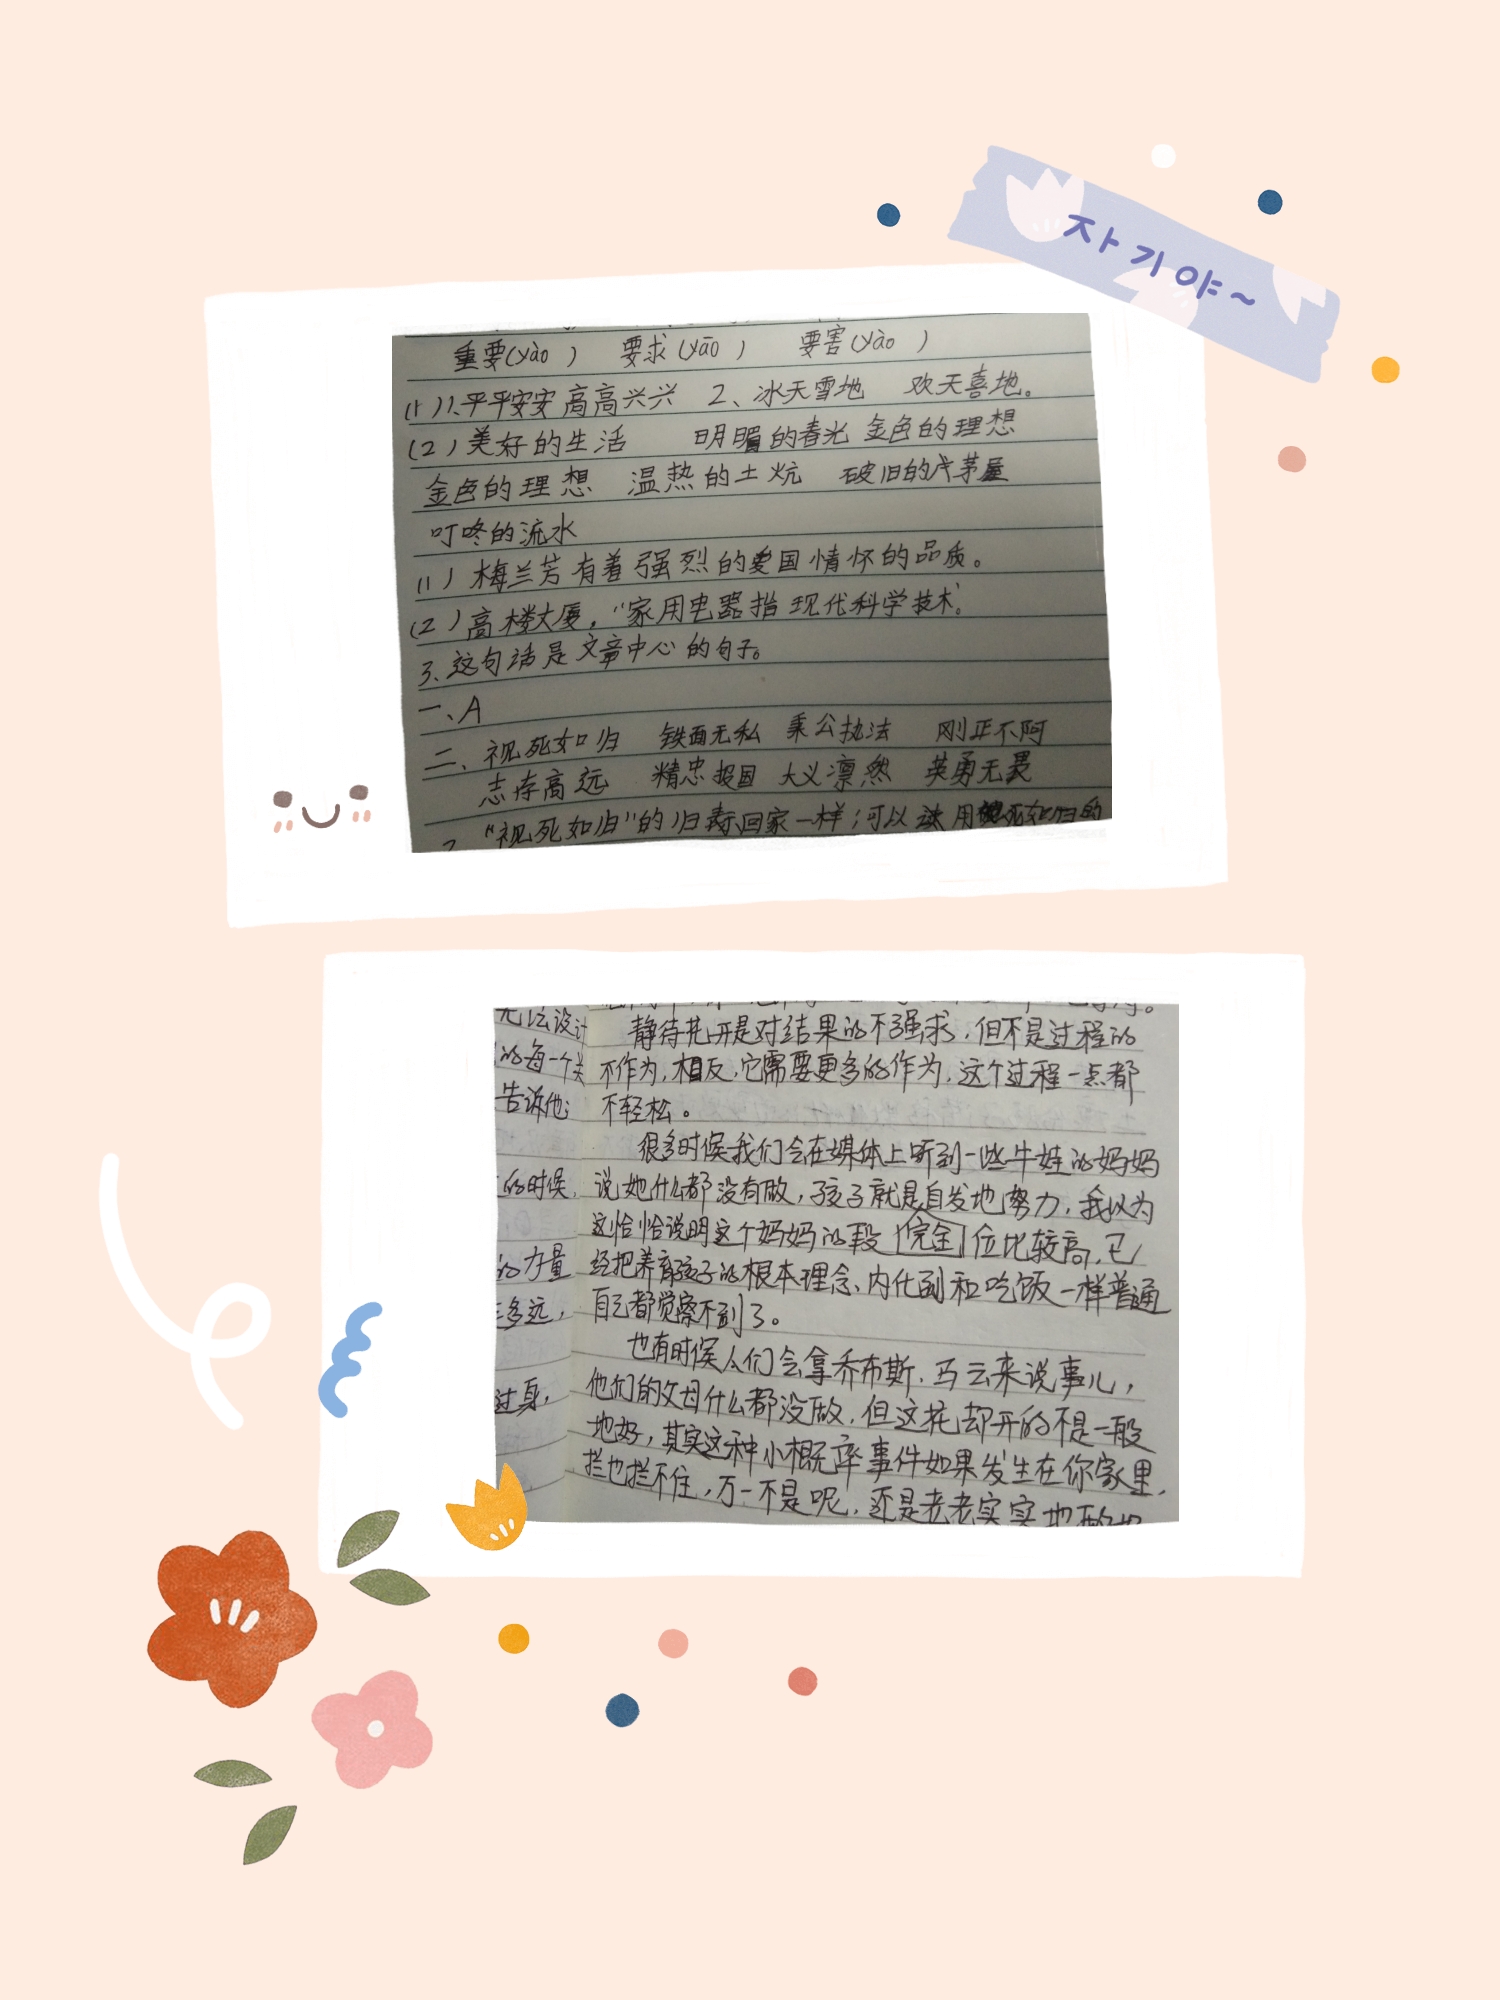 자기야~
重要(yào ) 要求(yāo ) 要害(yào )
(1)1、平平安安 高高兴兴 2、冰天雪地 欢天喜地。
(2)美好的生活 明媚的春光 金色的理想
金色的理想 温热的土炕 破旧的茅屋
叮咚的流水
(1)梅兰芳有着强烈的爱国情怀的品质。
(2)高楼大厦,"家用电器指现代科学技术。
3、这句话是文章中心的句子。
一、A
二、视死如归 铁面无私 秉公执法 刚正不阿
志存高远 精忠报国 大义凛然 英勇无畏
"视死如归"的归 回家一样;可以 用 死如归的
无法设计
的每一个关
告诉他:
的时候,
的力量
多远,
过身,
静待花开是对结果的不强求,但不是过程的
不作为,相反,它需要更多的作为,这个过程一点都
不轻松。
很多时候我们会在媒体上听到一些牛娃的妈妈
说她什么都没有做,孩子就是自发地努力,我以为
这恰恰说明这个妈妈的段 完全 位比较高,已
经把养育孩子的根本理念、内化到和吃饭一样普通
自己都觉察不到了。
也有时候人们会拿乔布斯.马云来说事儿,
他们的父母什么都没做,但这花却开的不是一般
地好,其实这种小概率事件如果发生在你家里,
拦也拦不住,万一不是呢,还是老老实实地